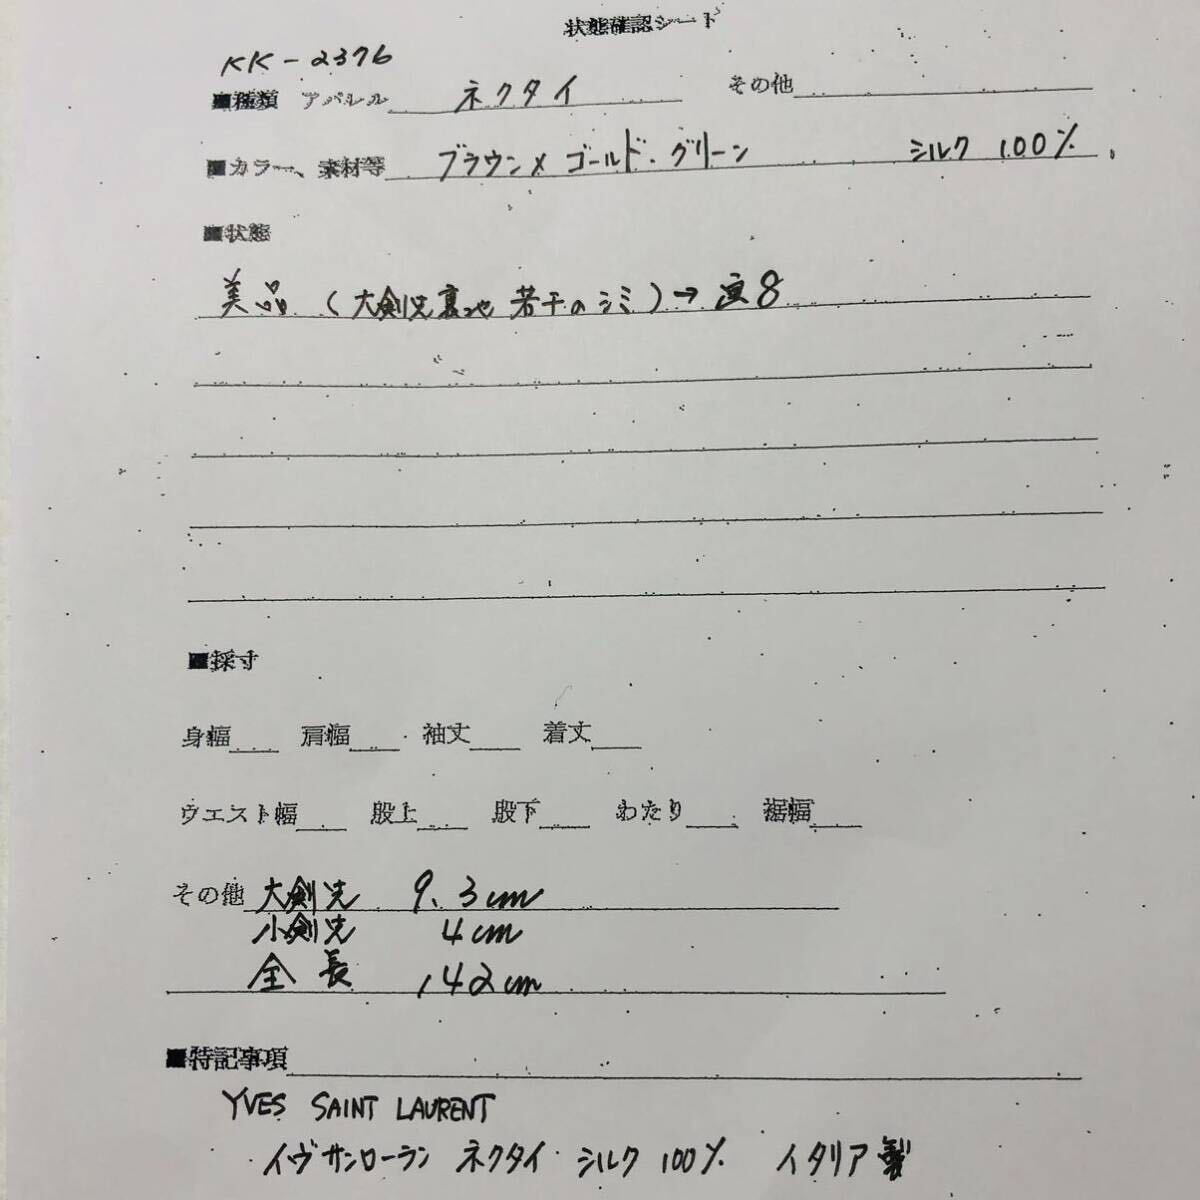 状態確認シート
KK-2376
■種類 アパレル ネクタイ その他
■カラー、素材等 ブラウン×ゴールド・グリーン シルク 100%
■状態
美品 (大剣先裏地 若干のシミ)→ 8
■採寸
身幅 肩幅 袖丈 着丈
ウエスト幅 股上 股下 わたり 裾幅
その他 大剣先 9.3cm
小剣先 4cm
全長 142cm
■特記事項
YVES SAINT LAURENT
イヴサンローラン ネクタイ シルク 100% イタリア製